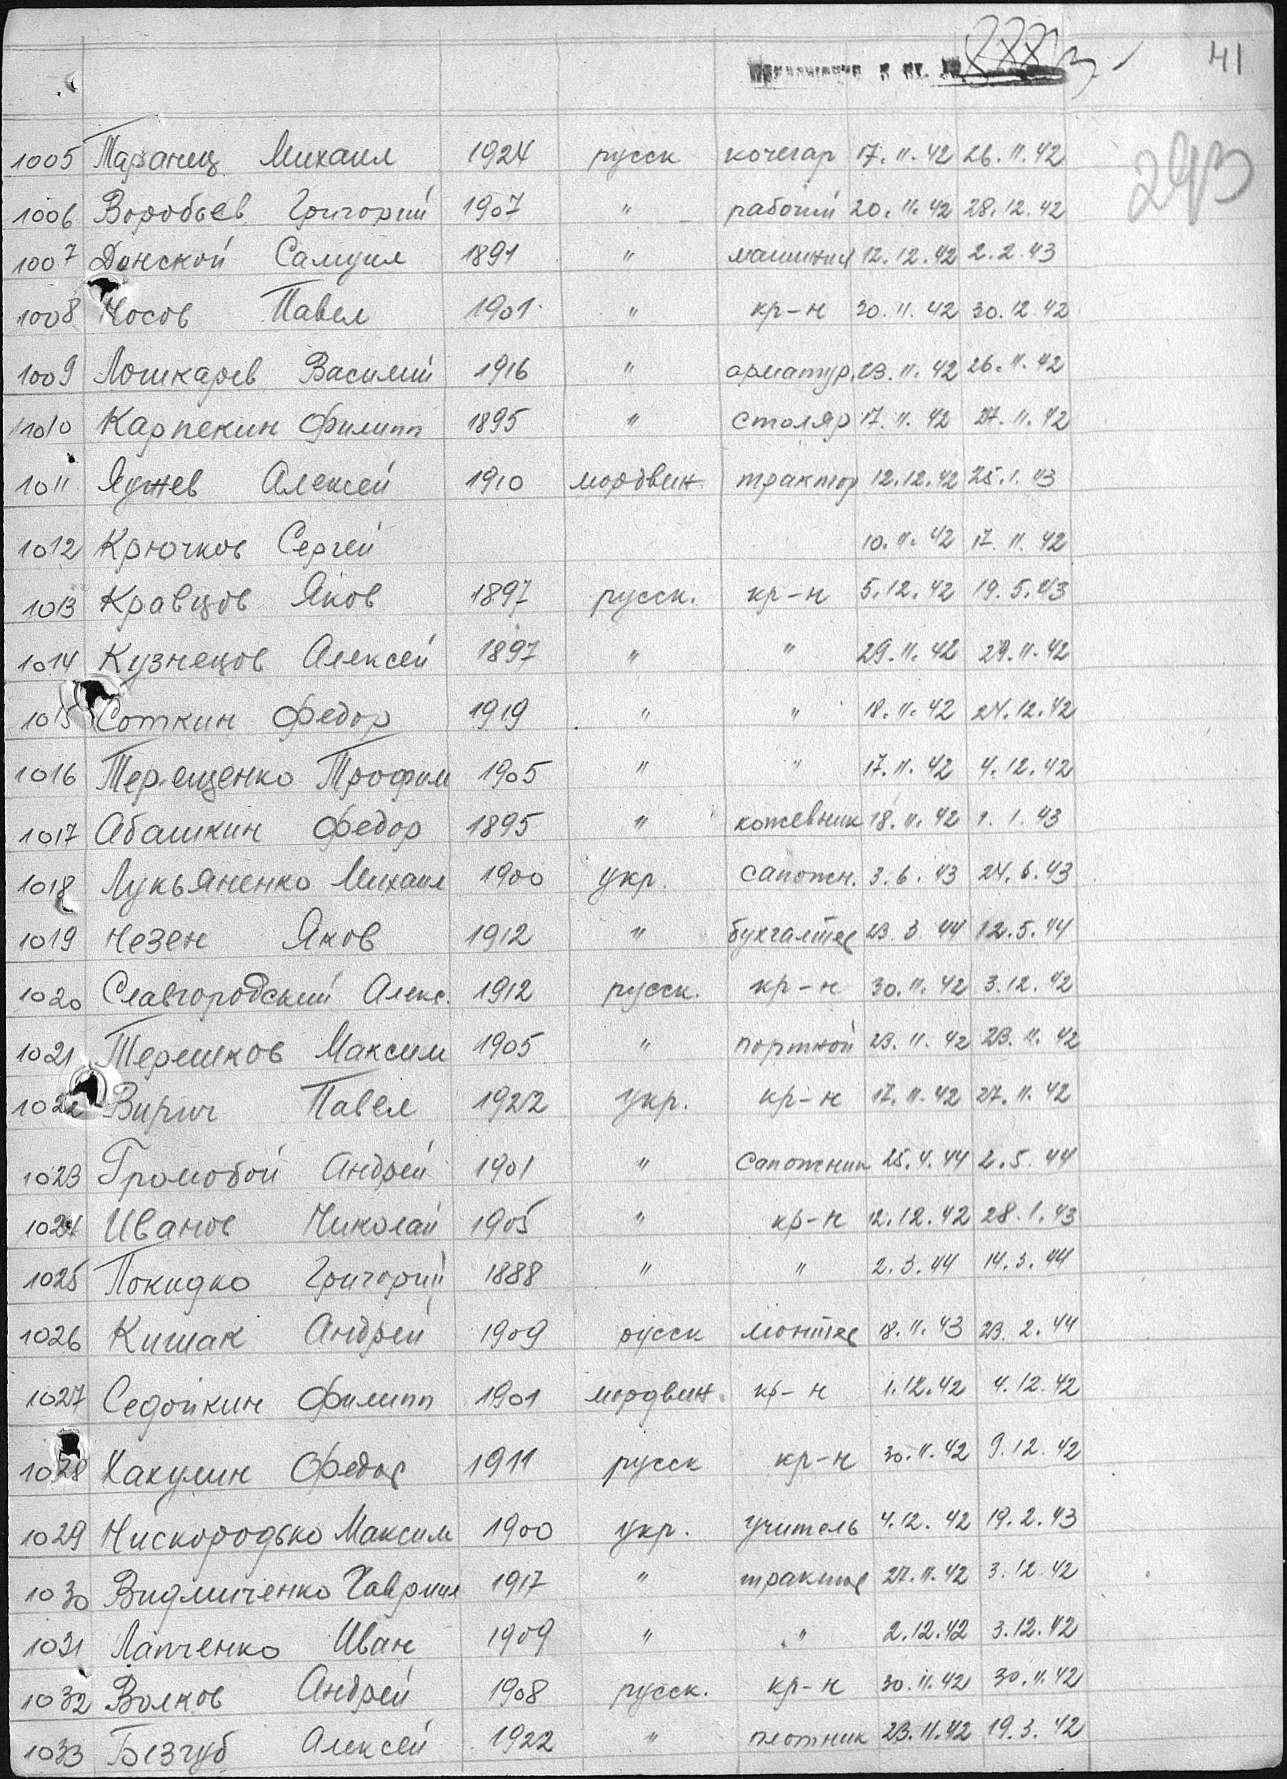 41
293
1005 Таранец Михаил 1924 русск кочегар 17.11.42 26.11.42
1006 Воробьев Григорий 1907 " рабочий 20.11.42 28.12.42
1007 Донской Самуил 1891 " машинис 12.12.42 2.2.43
1008 Носов Павел 1901 " кр-н 30.11.42 30.12.42
1009 Лошкарев Василий 1916 " арматур. 23.11.42 26.11.42
1010 Карпекин Филипп 1895 " столяр 17.11.42 27.11.42
1011 Яушев Алексей 1910 мордвин трактор 12.12.42 25.1.43
1012 Крючков Сергей 10.11.42 17.11.42
1013 Кравцов Яков 1897 русск. кр-н 5.12.42 19.5.43
1014 Кузнецов Алексей 1897 " " 29.11.42 29.11.42
1015 Соткин Федор 1919 " " 18.11.42 24.12.42
1016 Терещенко Трофим 1905 " " 17.11.42 4.12.42
1017 Абашкин Федор 1895 " кожевник 18.11.42 1.1.43
1018 Лукьяненко Михаил 1900 укр. сапожн. 3.6.43 24.6.43
1019 Незен Яков 1912 " бухгалтер 23.3.44 12.5.44
1020 Славгородский Алекс. 1912 русск. кр-н 30.11.42 3.12.42
1021 Терешков Максим 1905 " портной 23.11.42 23.11.42
1022 Вирич Павел 1922 укр. кр-н 17.11.42 27.11.42
1023 Громовой Андрей 1901 " сапожник 25.4.44 2.5.44
1024 Иванов Николай 1905 " кр-н 12.12.42 28.1.43
1025 Покидко Григорий 1888 " " 2.3.44 14.3.44
1026 Кишак Андрей 1909 русск монтер 18.11.43 23.2.44
1027 Седойкин Филипп 1901 мордвин. кр-н 1.12.42 4.12.42
1028 Хакулин Федор 1911 русск кр-н 30.11.42 9.12.42
1029 Нискородько Максим 1900 укр. учитель 4.12.42 19.2.43
1030 Видмиченко Гавриил 1917 " трактор 27.11.42 3.12.42
1031 Лапченко Иван 1909 " " 2.12.42 3.12.42
1032 Волков Андрей 1908 русск. кр-н 30.11.42 30.11.42
1033 Беззуб Алексей 1922 " плотник 23.11.42 19.3.42